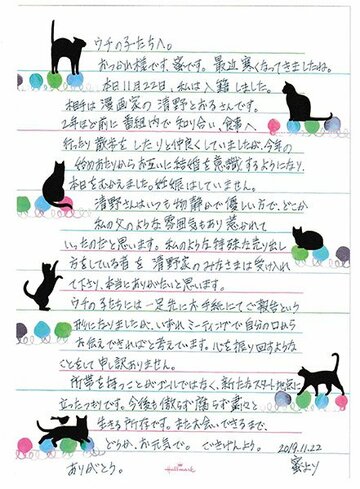 ウチの子たちへ。
おつかれ様です、蜜です。最近寒くなってきましたね。
本日11月22日、私は入籍しました。
相手は漫画家の清野とおるさんです。
2年ほど前に番組内で知り合い、食事へ
行ったり散歩をしたりと仲良くしていましたが、今年の
始めあたりからお互いに結婚を意識するようになり、
本日をむかえました。妊娠はしていません。
清野さんはいつも物静かで優しい方で、どこか
私の父のような雰囲気もあり惹かれて
いったのだと思います。私のような特殊な売り出し
方をしている者を清野家のみなさまは受け入れ
て下さり、本当にありがたいと思います。
ウチの子たちには一足先にお手紙にてご報告という
形になりましたが、いずれミーティングで自分の口から
お伝えできればと考えています。心を振り回すような
ことをして申し訳ありません。
所帯を持つことがゴールではなく、新たなスタート地点に
立ったつもりです。今後も傲らず腐らず粛々と
生きる所存です。またお会いできるまで、
どうか、お元気で。ごきげんよう。
2019.11.22
ありがとう。
Hallmark
蜜より